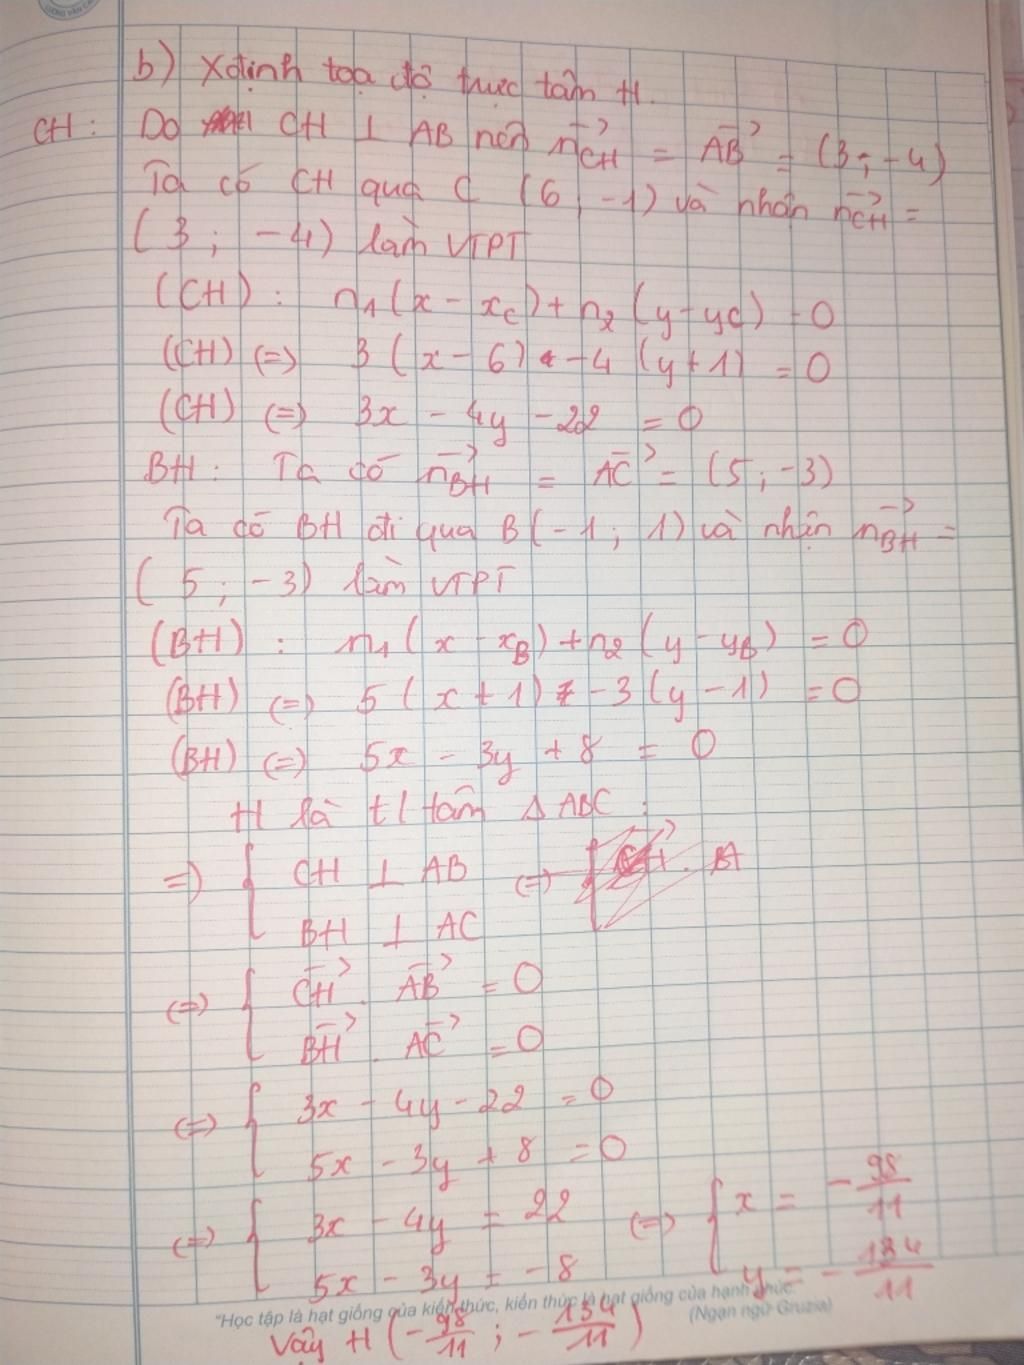 b) Xđịnh toạ độ trực tâm H.
CH: Do CH ⊥ AB nên n⃗CH = AB⃗ = (3; -4)
Ta có CH qua C (6; -1) và nhận n⃗CH =
(3; -4) làm VTPT
(CH): n1(x - xC) + n2(y - yC) = 0
(CH) (=) 3(x - 6) - 4(y + 1) = 0
(CH) (=) 3x - 4y - 22 = 0
BH: Ta có n⃗BH = AC⃗ = (5; -3)
Ta có BH đi qua B(-1; 1) và nhận n⃗BH =
(5; -3) làm VTPT
(BH): n1(x - xB) + n2(y - yB) = 0
(BH) (=) 5(x + 1) - 3(y - 1) = 0
(BH) (=) 5x - 3y + 8 = 0
H là tâm Δ ABC:
=) { CH ⊥ AB (=)
BH ⊥ AC
(=) { CH⃗ . AB⃗ = 0
BH⃗ . AC⃗ = 0
(=) { 3x - 4y - 22 = 0
5x - 3y + 8 = 0
(=) { 3x - 4y = 22 (=) { x = -98/11
5x - 3y = -8 y = -134/11
"Học tập là hạt giống của kiến thức, kiến thức là hạt giống của hạnh phúc.
(Ngạn ngữ Gruzia)
Vậy H (-98/11; -134/11)